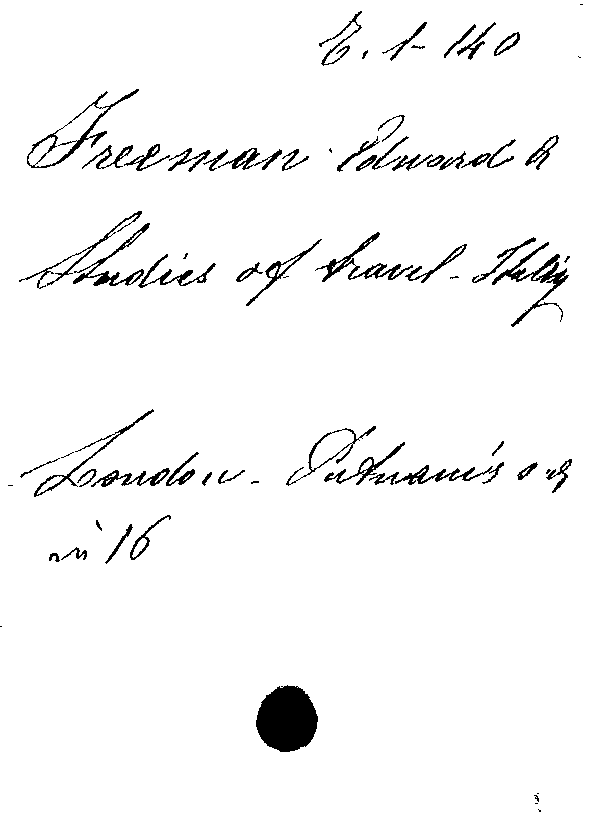 E. 1-140
Freeman Edward A
Studies of travel - Italy
London - Putnam's s. d.
in 16